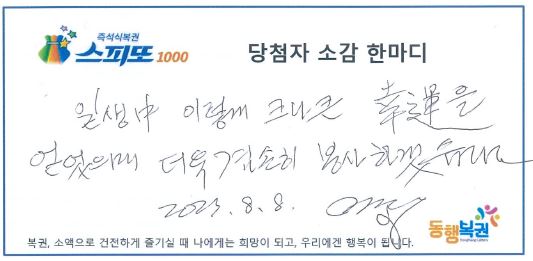 즉석식복권
스피또1000
당첨자 소감 한마디
일생中 이렇게 크나큰 幸運을
얻었으매 더욱 겸손히 봉사하겠습니다
2023. 8. 8.
동행복권
복권, 소액으로 건전하게 즐기실 때 나에게는 희망이 되고, 우리에겐 행복이 됩니다.